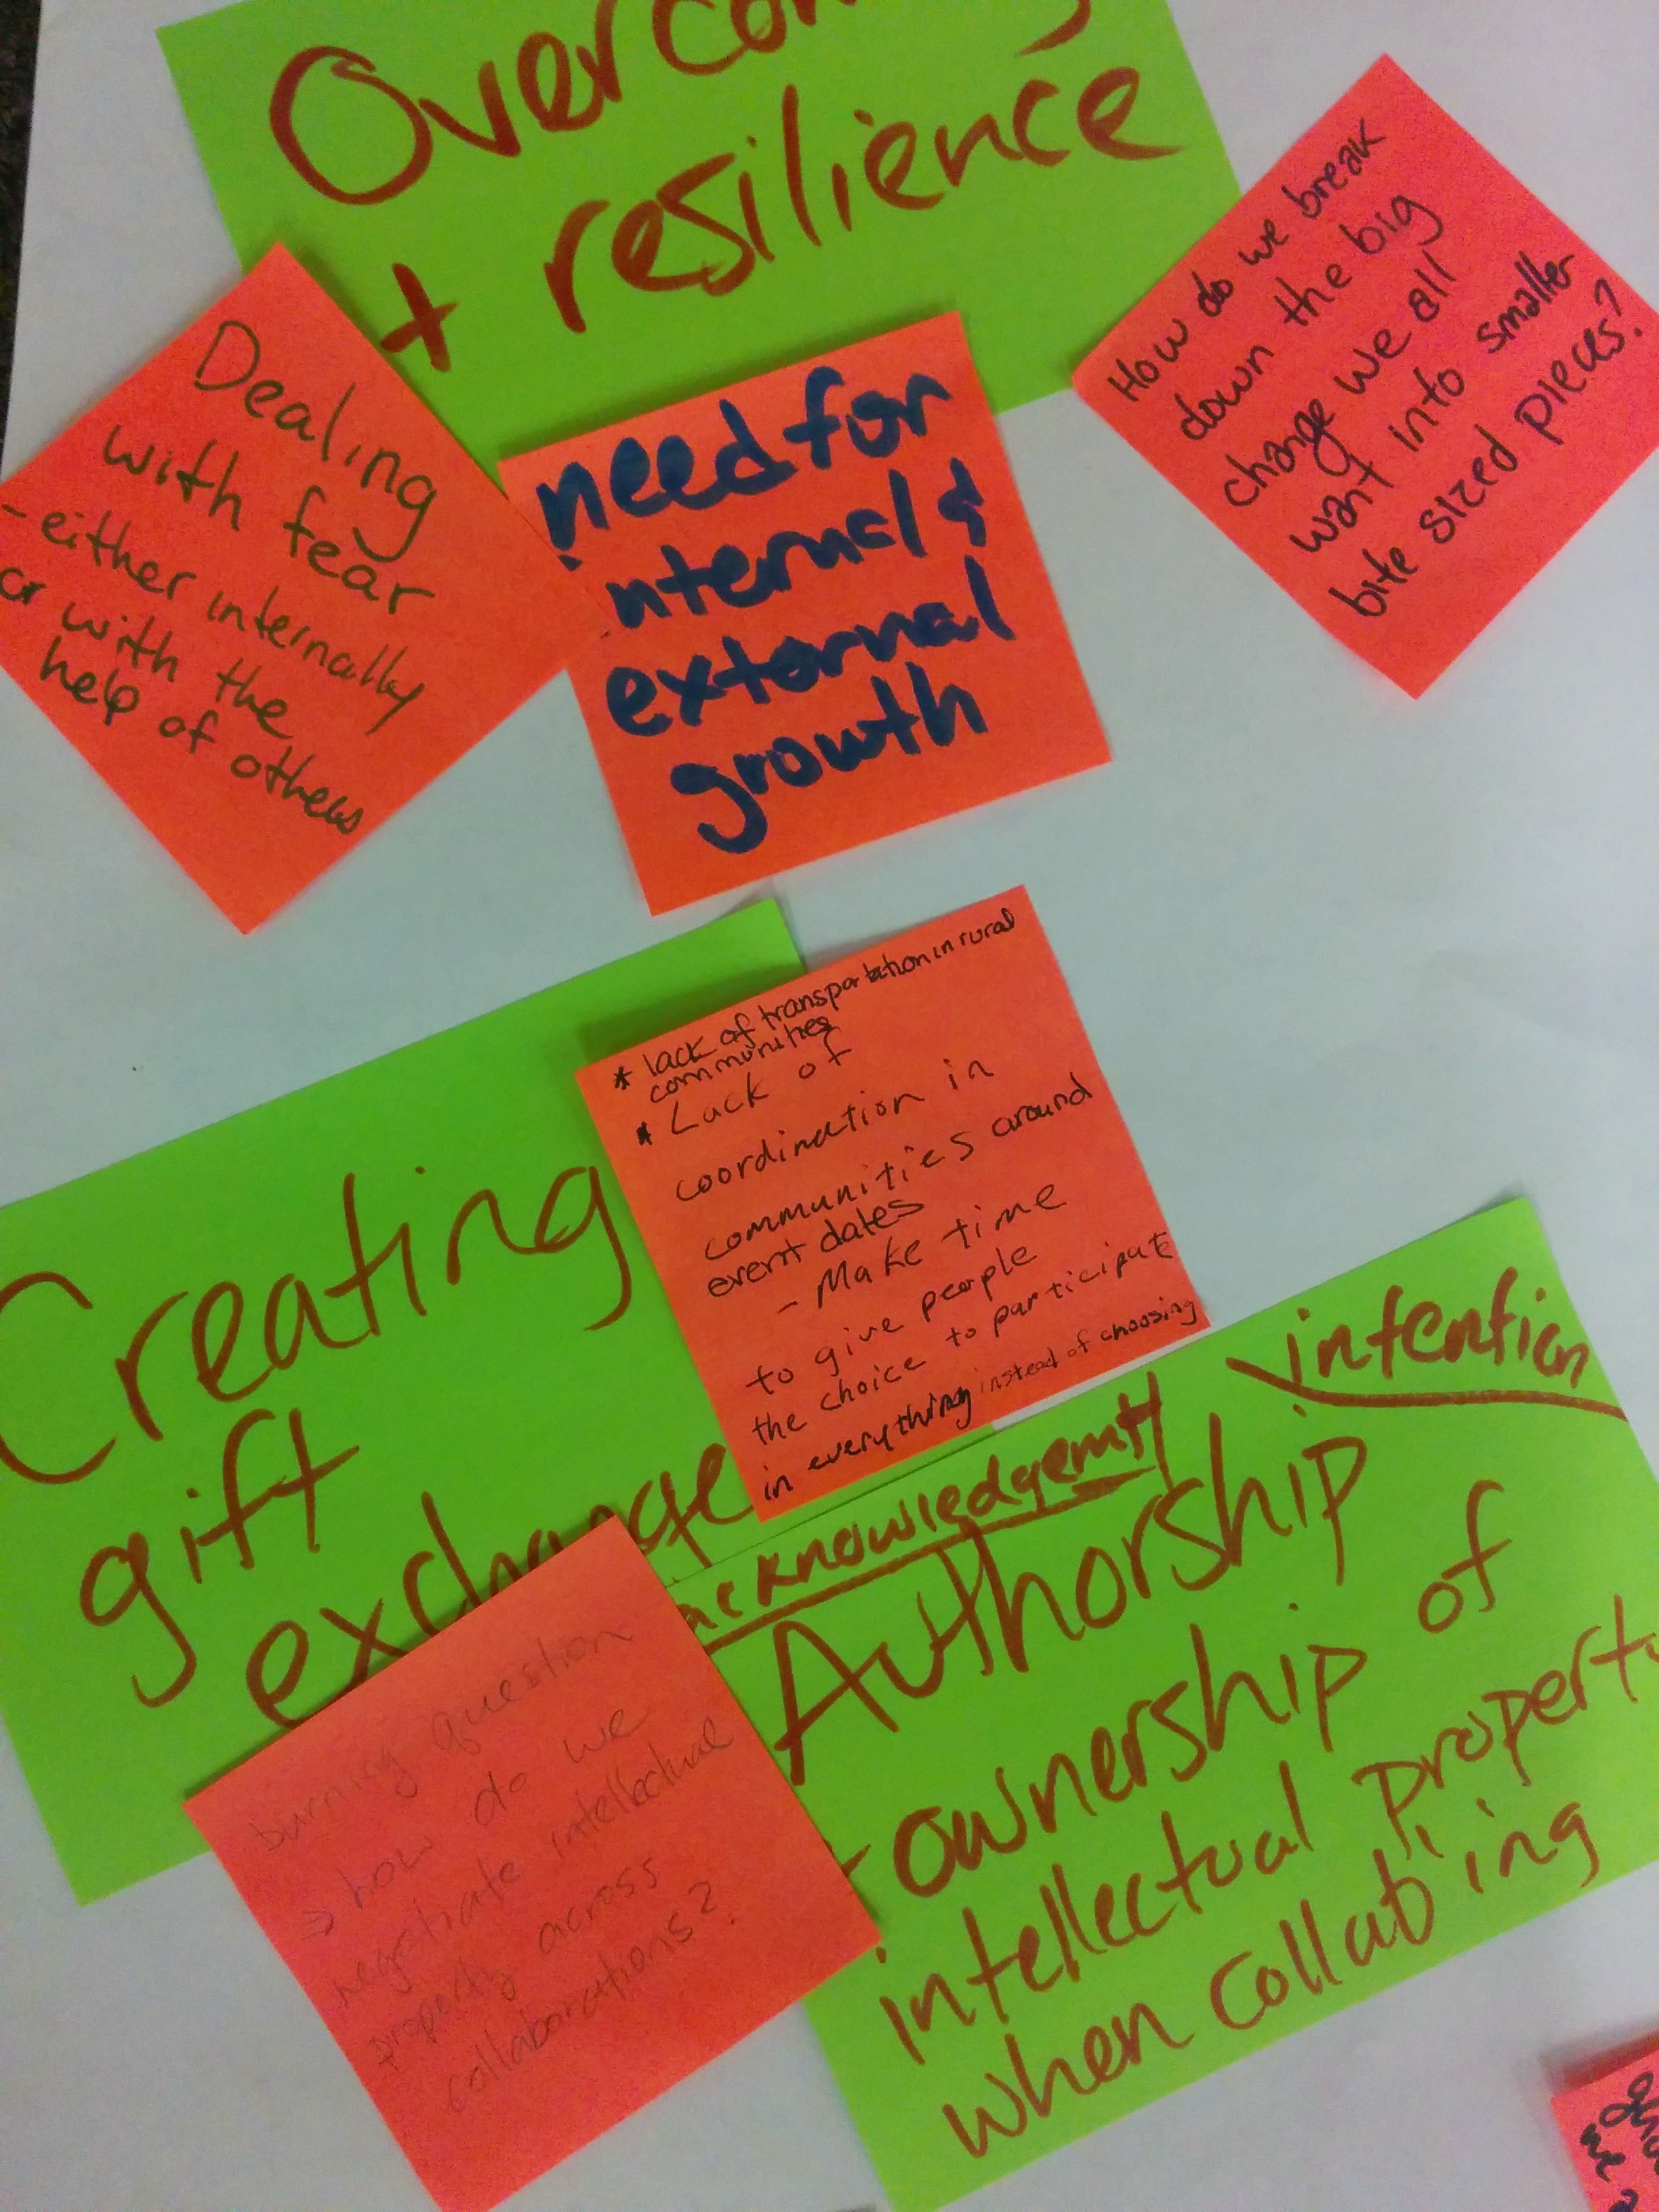 Overcom
+ resilience
Dealing
with fear
- either internally
or with the
help of others
need for
internal &
external
growth
How do we break
down the big
change we all
want into smaller
bite sized pieces?
* lack of transportation in rural
communities
* Lack of
coordination in
communities around
event dates
- Make time
to give people
the choice to participate
in everything instead of choosing
Creating
gift
exchange
burning question
→ how do we
negotiate intellectual
property across
collaborations?
intention
acknowledgemt
Authorship
+ ownership of
intellectual propert
when collab'ing